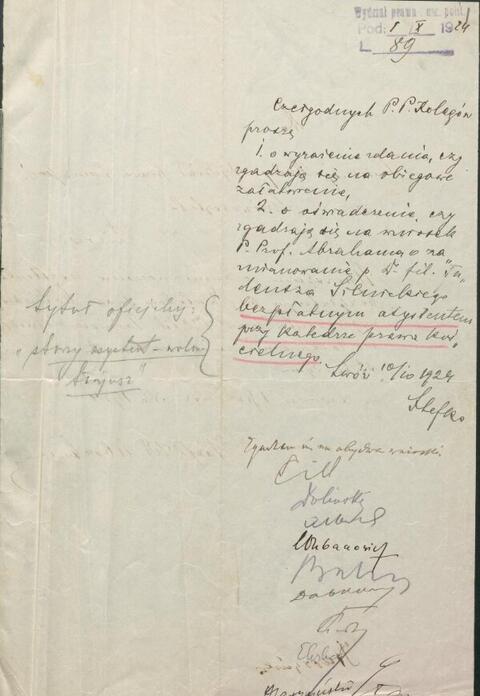 Wydział prawa i um. polit.
Pod: 1 X 1924
L. 89
Czcigodnych P.P. Kolegów
proszę
1. o wyrażenie zdania, czy
zgadzają się na obiegowe
załatwienie,
2. o oświadczenie, czy
zgadzają się na wniosek
P. Prof. Abrahama o za
mianowanie p. D. fil. "Ta
deusza Silnickiego
bezpłatnym asystentem
przy katedrze prawa koś
cielnego.
Lwów 10/10 1924
Stefko
tytuł oficjalny:
"starszy asystent-wolon
tarjusz"
Zgadzam się na obydwa wnioski
Till
Doliński
Urbanowicz
Dąbkowski
Ehrlich